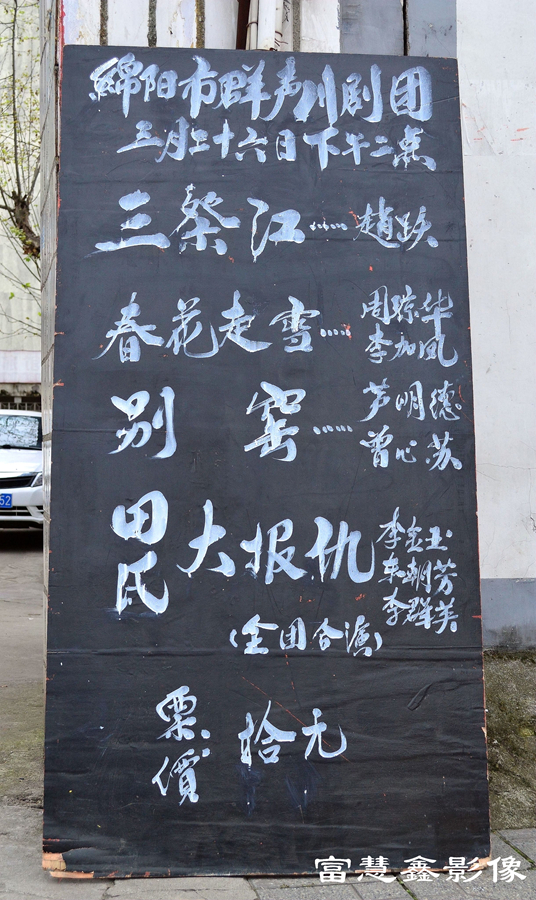 綿阳市群声川剧团
三月二十六日下午二点
三祭江……趙跃
春花走雪……周琼华
李加凤
别窑……芦明德
曾心苏
田氏大报仇 李金玉
朱朝芳
李群美
(全团合演)
票價 拾元
52
富慧鑫影像